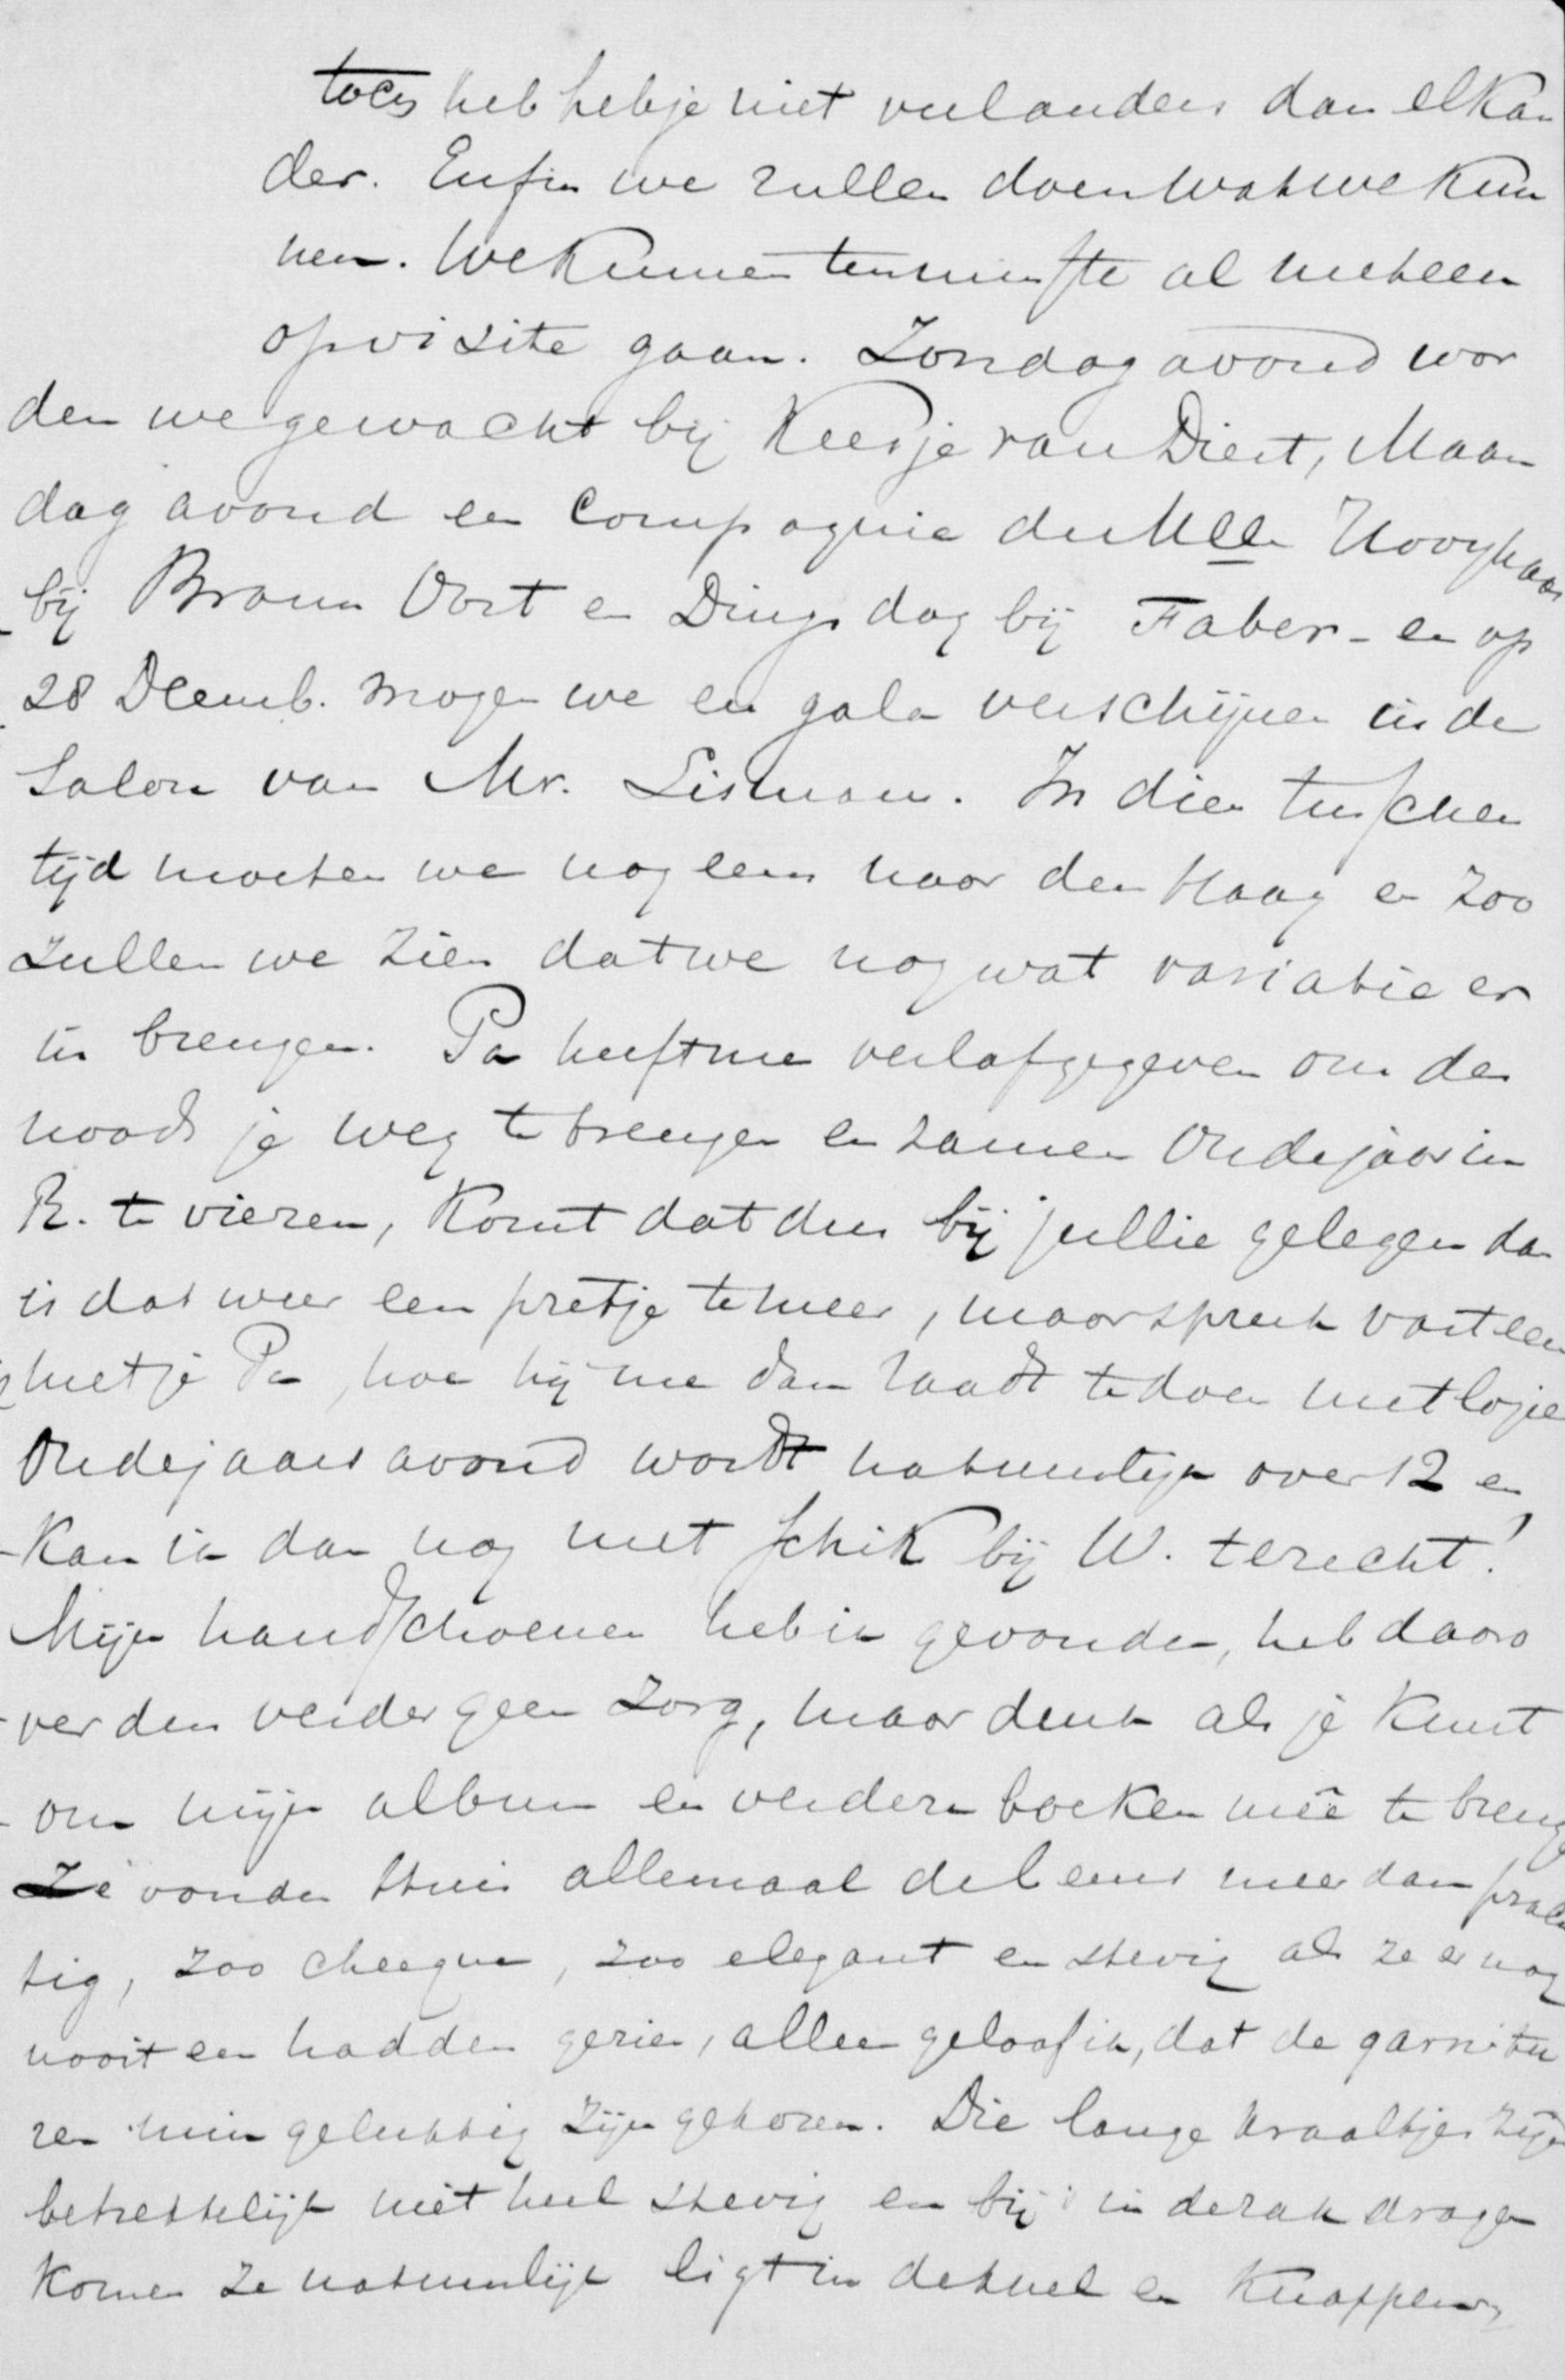 toch heb heb je niet veel anders dan elkan
der. Enfin we zullen doen wat we kun
nen. We kunnen tenminste al meteen
op visite gaan. Zondag avond wor
den we gewacht bij Keesje van Diest, Maan
dag avond en compagnie de Mlle
bij Oort en Dingsdag bij Faber - en op
28 Decemb. mogen we en gala verschijnen in de
Salon van Mr. Lisman. In dien tusschen
tijd moeten we nog eens naar den Haag en zoo
zullen we zien dat we nog wat variatie er
in brengen. Pa heeft me verlof gegeven om des
noods je weg te brengen en samen Oudejaar in
R. te vieren, komt dat dus bij jullie gelegen dan
is dat weer een pretje te meer, maar spreek vast eens
met je Pa, hoe hij me dan raadt te doen met logie
Oudejaarsavond wordt natuurlijk over 12 en
kan ik dan nog met schik bij W. terecht!
Mijn handschoenen heb ik gevonden, heb daaro
ver dus verder geen zorg, maar denk als je kunt
om mijn album en verdere boeken meê te breng
Ze vonden thuis allemaal del eens meer dan prach
tig, zoo cheeque, zoo elegant en stevig als ze er nog
nooit een hadden gezien, alleen geloof ik, dat de garnitu
ren min gelukkig zijn gekozen. Die lange kraaltjes zijn
betrekkelijk niet heel stevig en bij in de zak dragen
komen ze natuurlijk ligt in de knel en knappen